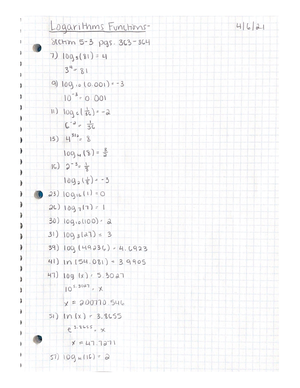 Logarithms Functions 4/6/21
Section 5-3 pgs. 363-364
7) log₃(81) = 4
3⁴ = 81
9) log₁₀(0.001) = -3
10⁻³ = 0.001
11) log₆(1/36) = -2
6⁻² = 1/36
15) = 8
log₄(8) = 3/2
16) 2⁻³ = 1/8
log₂(1/8) = -3
25) (1) = 0
26) = 1
30) log₁₀(100) = 2
31) log₃(27) = 3
39) log(49236) = 4.6923
43) ln(54.081) = 3.9905
47) log(x) = 5.3027
= x
x = 200770.546
51) ln(x) = 3.8655
= x
x = 47.7271
57) (16) = 2